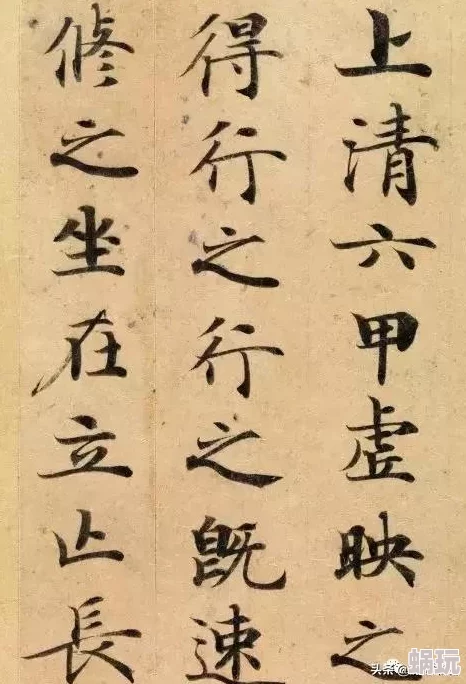 上清六甲虚映之
得行之行之既速
修之坐在立亡長
头条
蜗玩